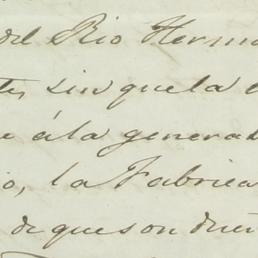 del Rio Herma
te, sin que la
e á la genera
io, la Fabrica
de que son due